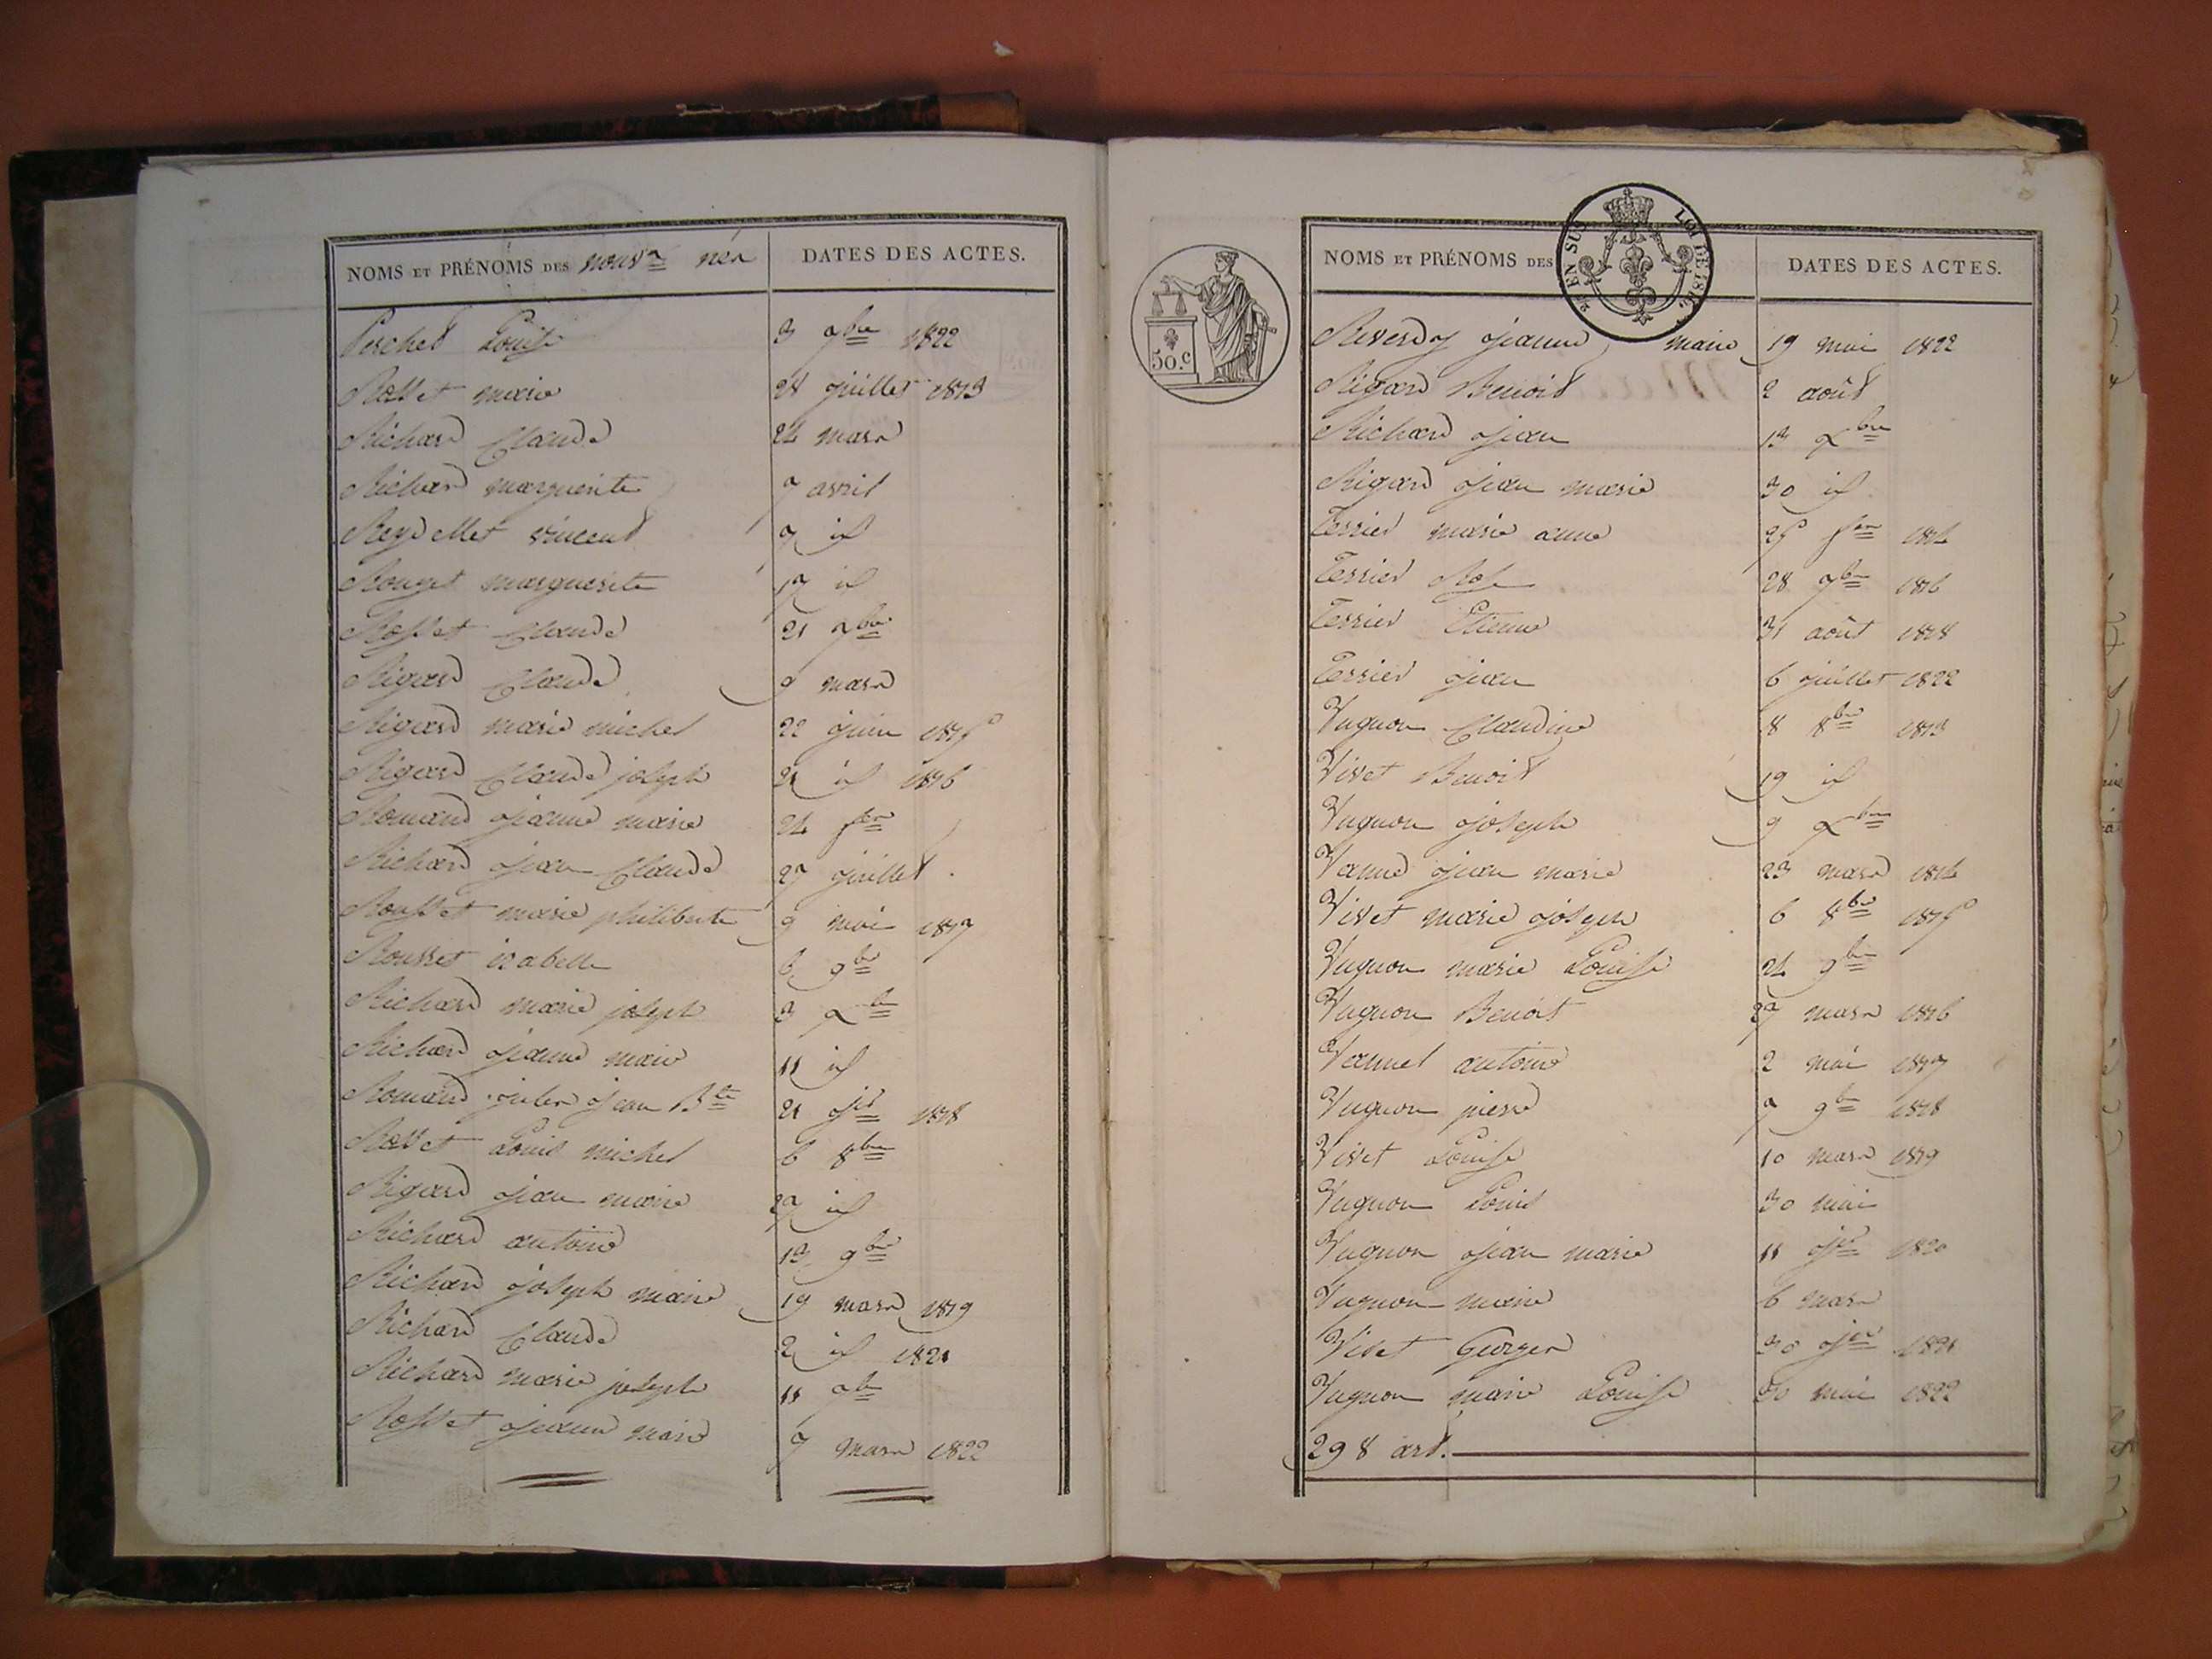 NOMS ET PRÉNOMS DES nouvx nés
DATES DES ACTES.
Perchet Louise 3 7bre 1822
Rosset marie 28 juillet 1813
Richard Claude 24 mars
Richard marguerite 7 avril
Reydellet vincent 9 id
Rouget marguerite 17 id
Rosset Claude 21 7bre
Rigard Claude 9 mars
Rigard marie michel 22 juin 1815
Rigard Claude joseph 21 id 1816
Romand jeanne marie 24
Richard jean Claude 27 juillet
Rousset marie philiberte 9 mai 1817
Rousset izabelle 6 9bre
Richard marie joseph 3 Xbre
Richard jeanne marie 11 id
Romand jules jean Bte 21 jer 1818
Rosset Louis michel 6 8bre
Rigard jean marie 27 id
Richard antoine 13 9bre
Richard joseph marie 19 mars 1819
Richard Claude 2 id 1821
Richard marie joseph 11
Rosset jeanne marie 7 mars 1822
50.c
EN SUS
LOI DE 1816
NOMS ET PRÉNOMS DES
DATES DES ACTES.
Reverdy jeanne marie 19 mai 1822
Rigard Benoit 2 août
Richard jean 13 Xbre
Rigard jean marie 30 id
Terrier marie anne 25 1814
Terrier Rose 28 7bre 1816
Terrier Etienne 31 août 1818
Terrier jean 6 juillet 1822
Vugnon Claudine 8 8bre 1813
Vivet Benoit 19 id
Vugnon joseph 9 Xbre
jean marie 23 mars 1814
Vivet marie joseph 6 8bre 1815
Vugnon marie Louise 24 9bre
Vugnon Benoit 27 mars 1816
antoine 2 mai 1817
Vugnon pierre 7 9bre 1818
Vivet Louise 10 mars 1819
Vugnon Louis 30 mai
Vugnon jean marie 11 jer 1820
Vugnon marie 6 mars
Vivet Georges 30 jer 1821
Vugnon marie Louise 30 mai 1822
298 art.